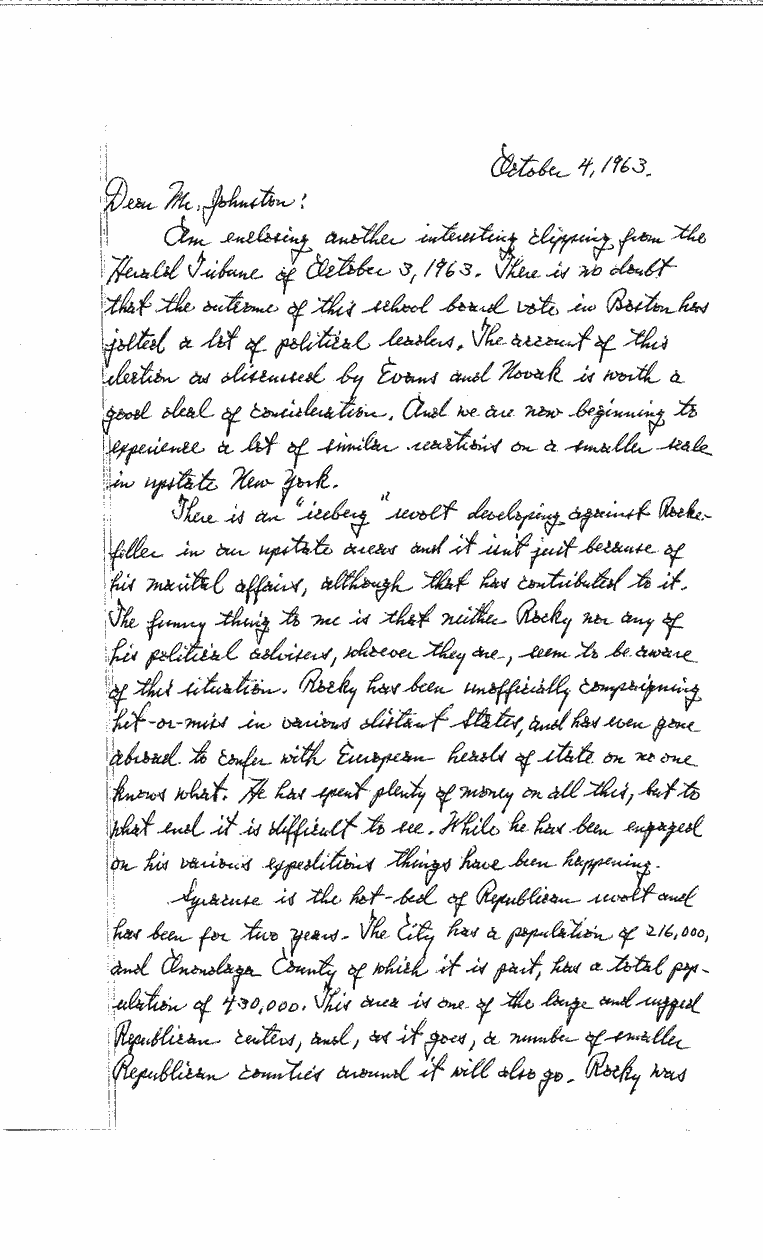 October 4, 1963.
Dear Mr. Johnston:
Am enclosing another interesting clipping from the
Herald Tribune of October 3, 1963. There is no doubt
that the outcome of this school board vote in Boston has
jolted a lot of political leaders. The account of this
election as discussed by Evans and Novak is worth a
good deal of consideration. And we are now beginning to
experience a lot of similar reactions on a smaller scale
in upstate New York.
There is an "iceberg" revolt developing against Rocke-
feller in our upstate areas and it isn't just because of
his marital affairs, although that has contributed to it.
The funny thing to me is that neither Rocky nor any of
his political advisers, whoever they are, seem to be aware
of this situation. Rocky has been unofficially campaigning
hit-or-miss in various distant States, and has even gone
abroad to confer with European heads of state on no one
knows what. He has spent plenty of money on all this, but to
what end it is difficult to see. While he has been engaged
on his various expeditions things have been happening.
Syracuse is the hot-bed of Republican revolt and
has been for two years. The City has a population of 216,000,
and Onondaga County of which it is part, has a total pop-
ulation of 430,000. This area is one of the large and rugged
Republican centers, and, as it goes, a number of smaller
Republican counties around it will also go. Rocky was